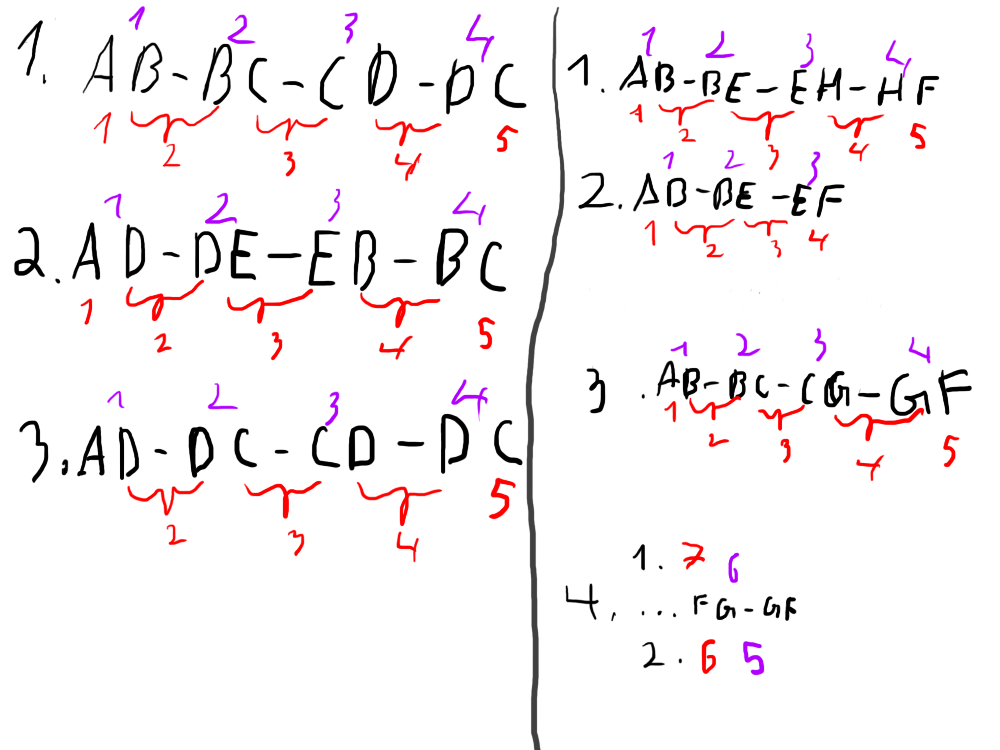 1 2 3 4
1. AB-BC-CD-DC
1 2 3 4 5
1 2 3 4
2. AD-DE-EB-BC
1 2 3 4 5
1 2 3 4
3. AD-DC-CD-DC
2 3 4 5
1 2 3 4
1. AB-BE-EH-HF
1 2 3 4 5
1 2 3
2. AB-BE-EF
1 2 3 4
1 2 3 4
3. AB-BC-CG-GF
1 2 3 4 5
1. 7 6
4. ... FG-GF
2. 6 5